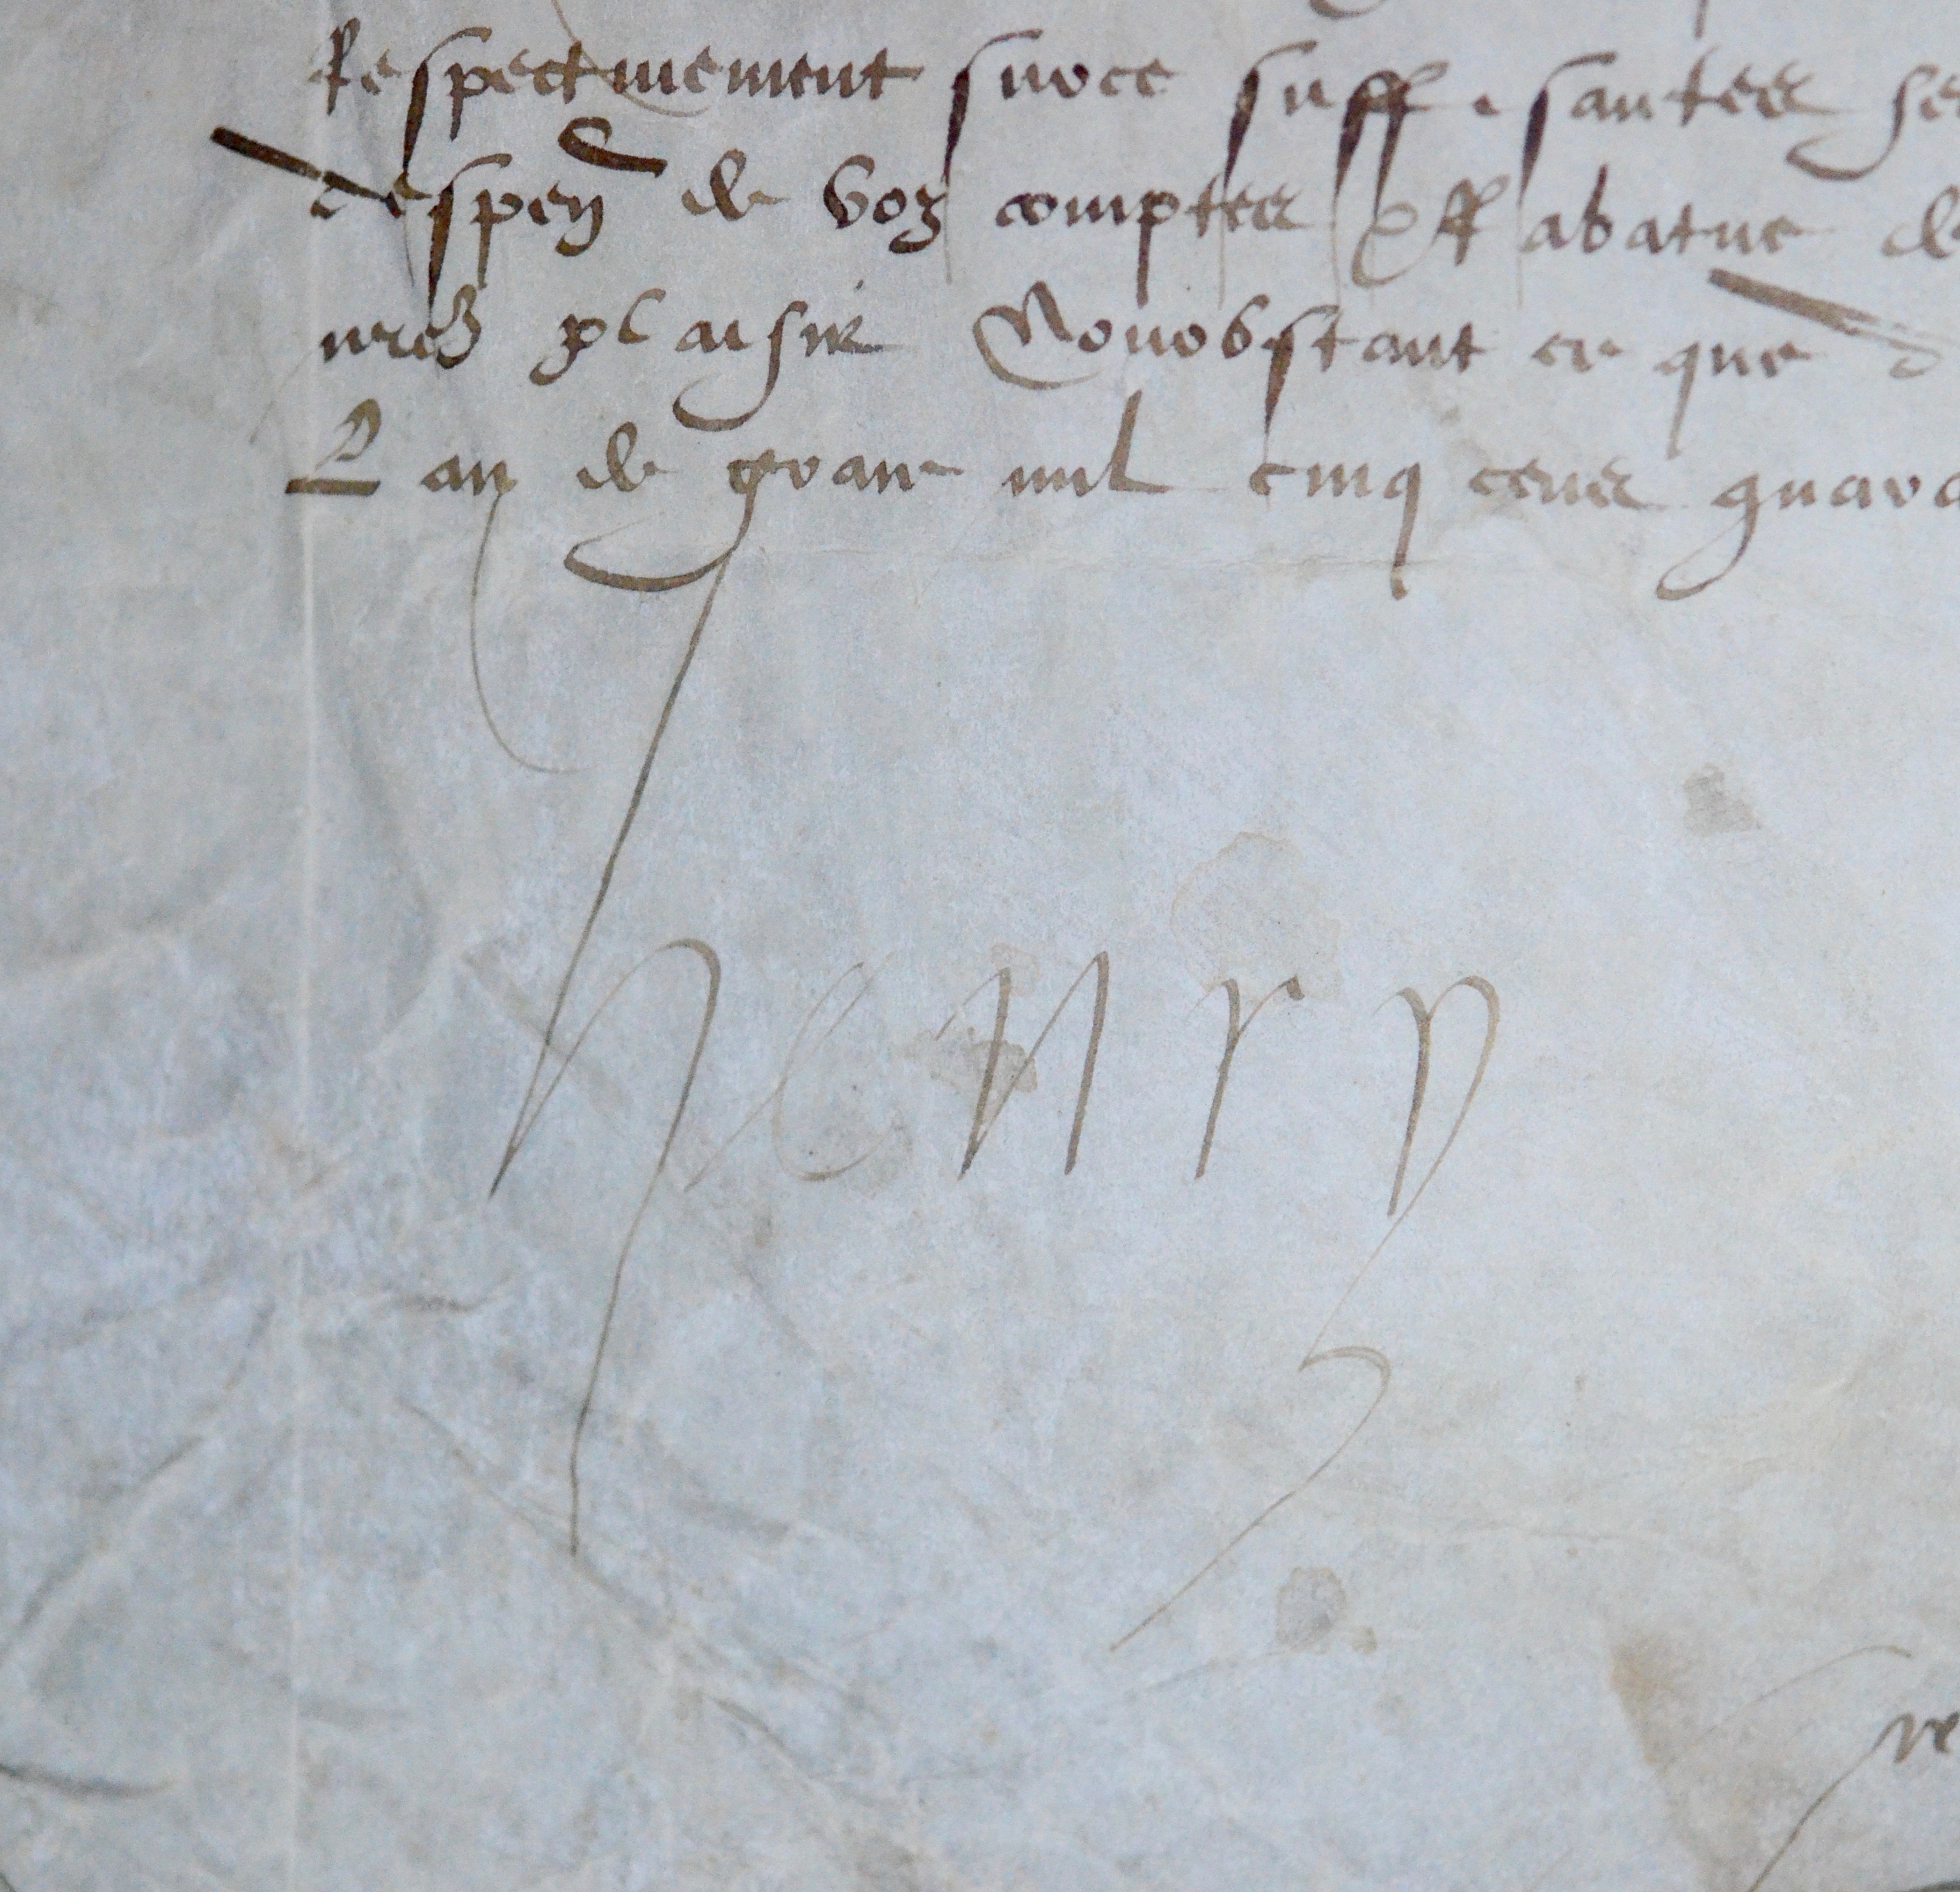 Respectivement sur ce suffisantes se
despen de voz comptes Et rabatue de
nred plaisir Nonobstant ce que d
L an de grace mil cinq cens quara
henry